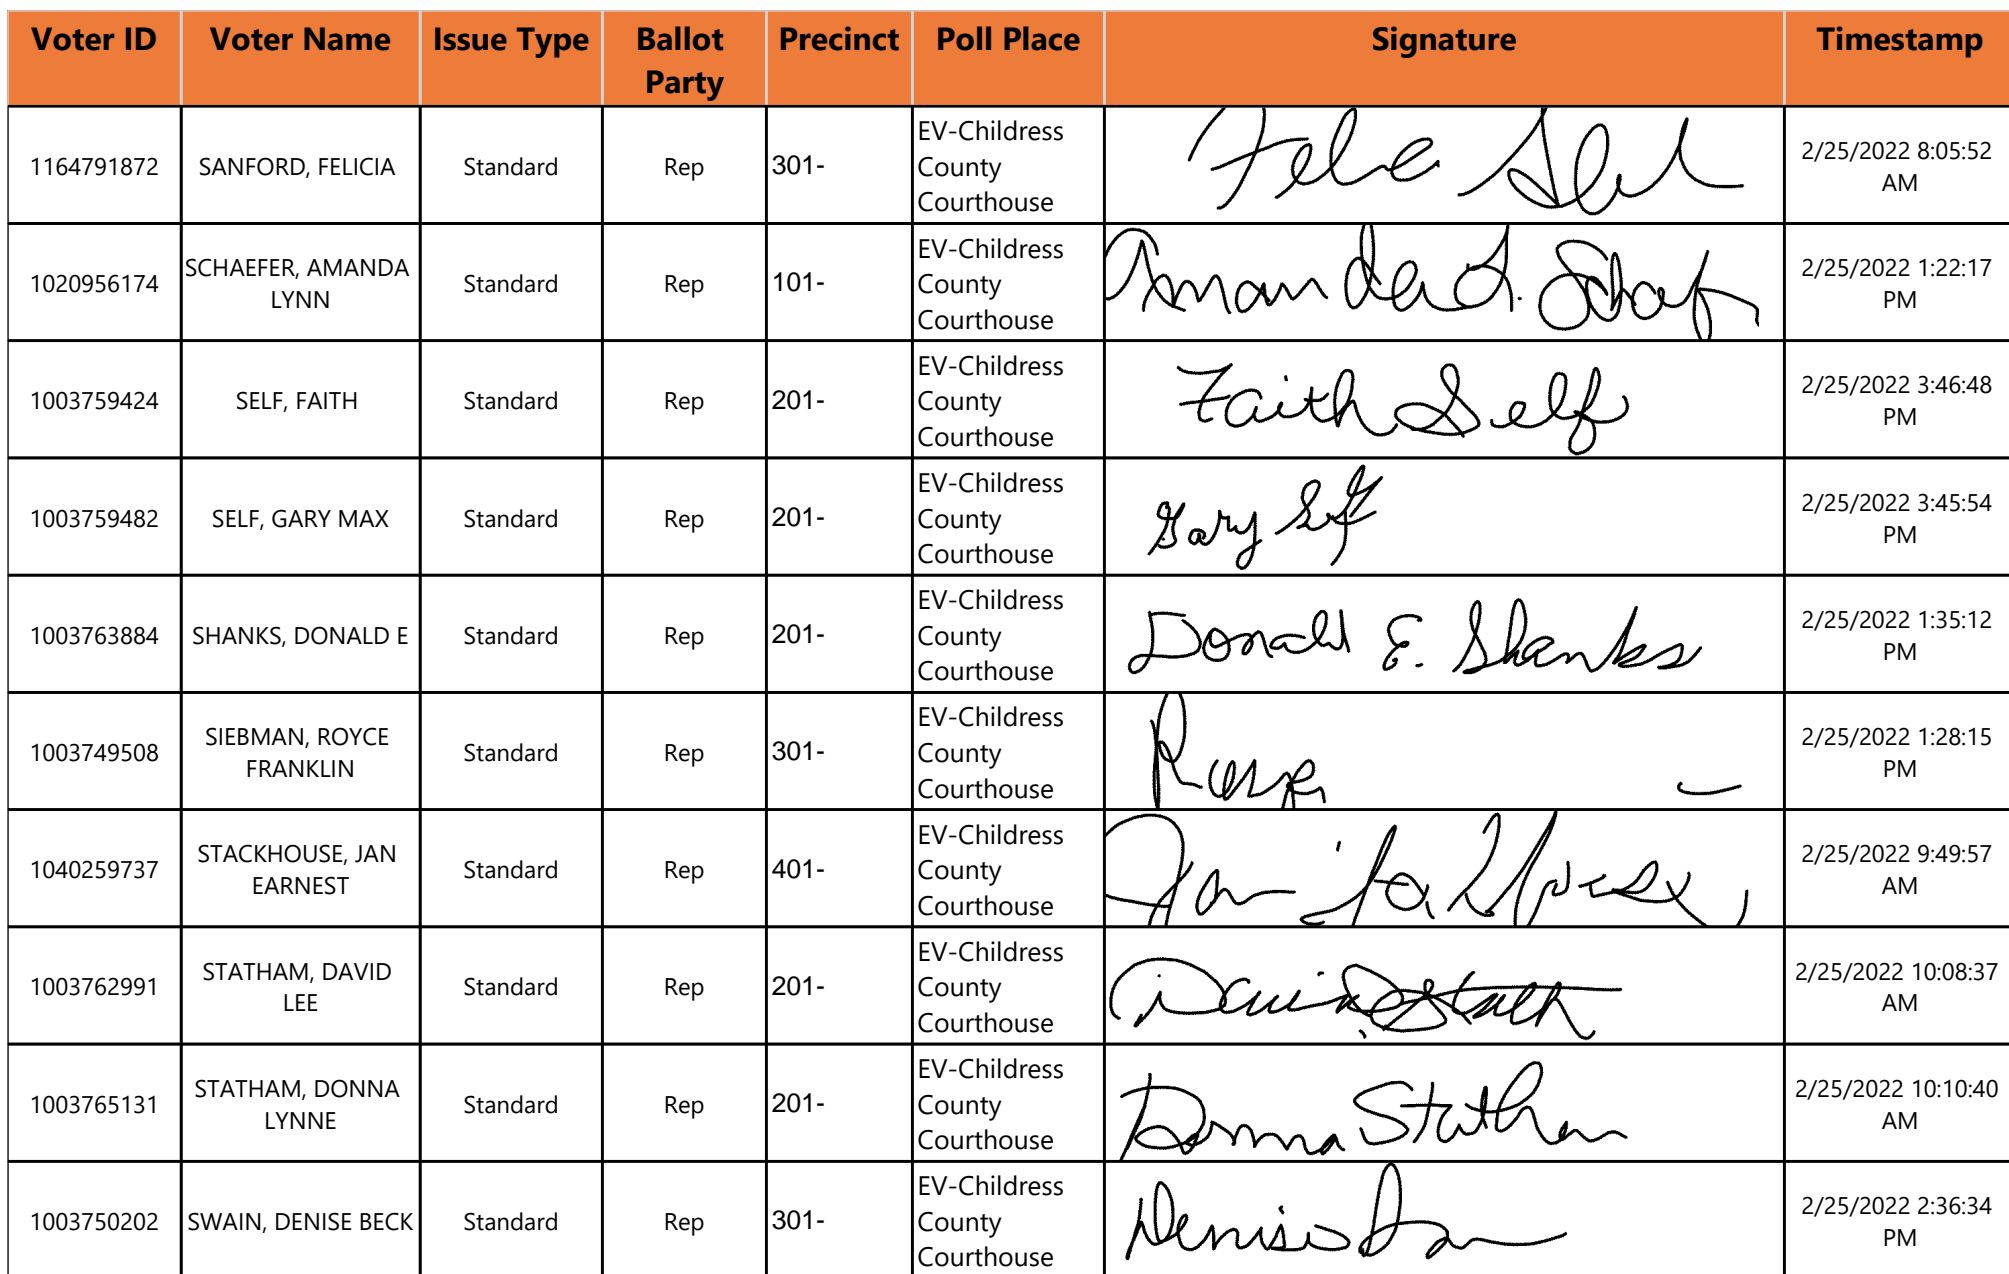 Voter ID Voter Name Issue Type Ballot Party Precinct Poll Place Signature Timestamp
1164791872 SANFORD, FELICIA Standard Rep 301- EV-Childress County Courthouse 2/25/2022 8:05:52 AM
1020956174 SCHAEFER, AMANDA LYNN Standard Rep 101- EV-Childress County Courthouse Amanda L. 2/25/2022 1:22:17 PM
1003759424 SELF, FAITH Standard Rep 201- EV-Childress County Courthouse Faith Self 2/25/2022 3:46:48 PM
1003759482 SELF, GARY MAX Standard Rep 201- EV-Childress County Courthouse Gary Self 2/25/2022 3:45:54 PM
1003763884 SHANKS, DONALD E Standard Rep 201- EV-Childress County Courthouse Donald E. Shanks 2/25/2022 1:35:12 PM
1003749508 SIEBMAN, ROYCE FRANKLIN Standard Rep 301- EV-Childress County Courthouse 2/25/2022 1:28:15 PM
1040259737 STACKHOUSE, JAN EARNEST Standard Rep 401- EV-Childress County Courthouse Jan 2/25/2022 9:49:57 AM
1003762991 STATHAM, DAVID LEE Standard Rep 201- EV-Childress County Courthouse David 2/25/2022 10:08:37 AM
1003765131 STATHAM, DONNA LYNNE Standard Rep 201- EV-Childress County Courthouse Donna Statham 2/25/2022 10:10:40 AM
1003750202 SWAIN, DENISE BECK Standard Rep 301- EV-Childress County Courthouse Denise 2/25/2022 2:36:34 PM